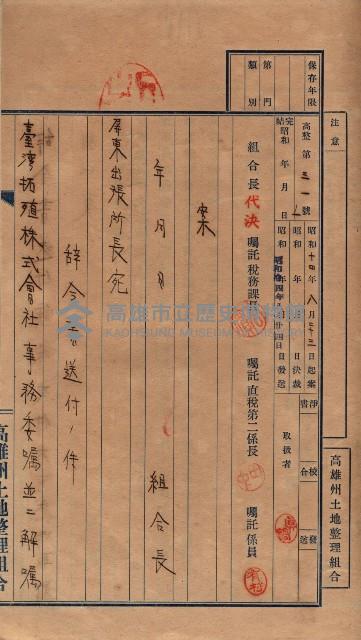 保存年限
第 門
類 別
注意
高雄州土地整理組合
高整第三一號ノ
昭和十四年八月二三日起案
淨書
校合
發送
完結 昭和 年 月 日
昭和 年 月 日決裁
昭和拾四年 月廿四日發送
取扱者
組合長 代決 囑託稅務課長 囑託直稅第二係長 囑託係員
案
年 月 日 組合長
屏東出張所長宛
辭令書送付ノ件
臺灣拓殖株式會社事務委囑並ニ解囑
高雄州土地整理組合
高雄市立歷史博物館
KAOHSIUNG MUSEUM OF HISTORY